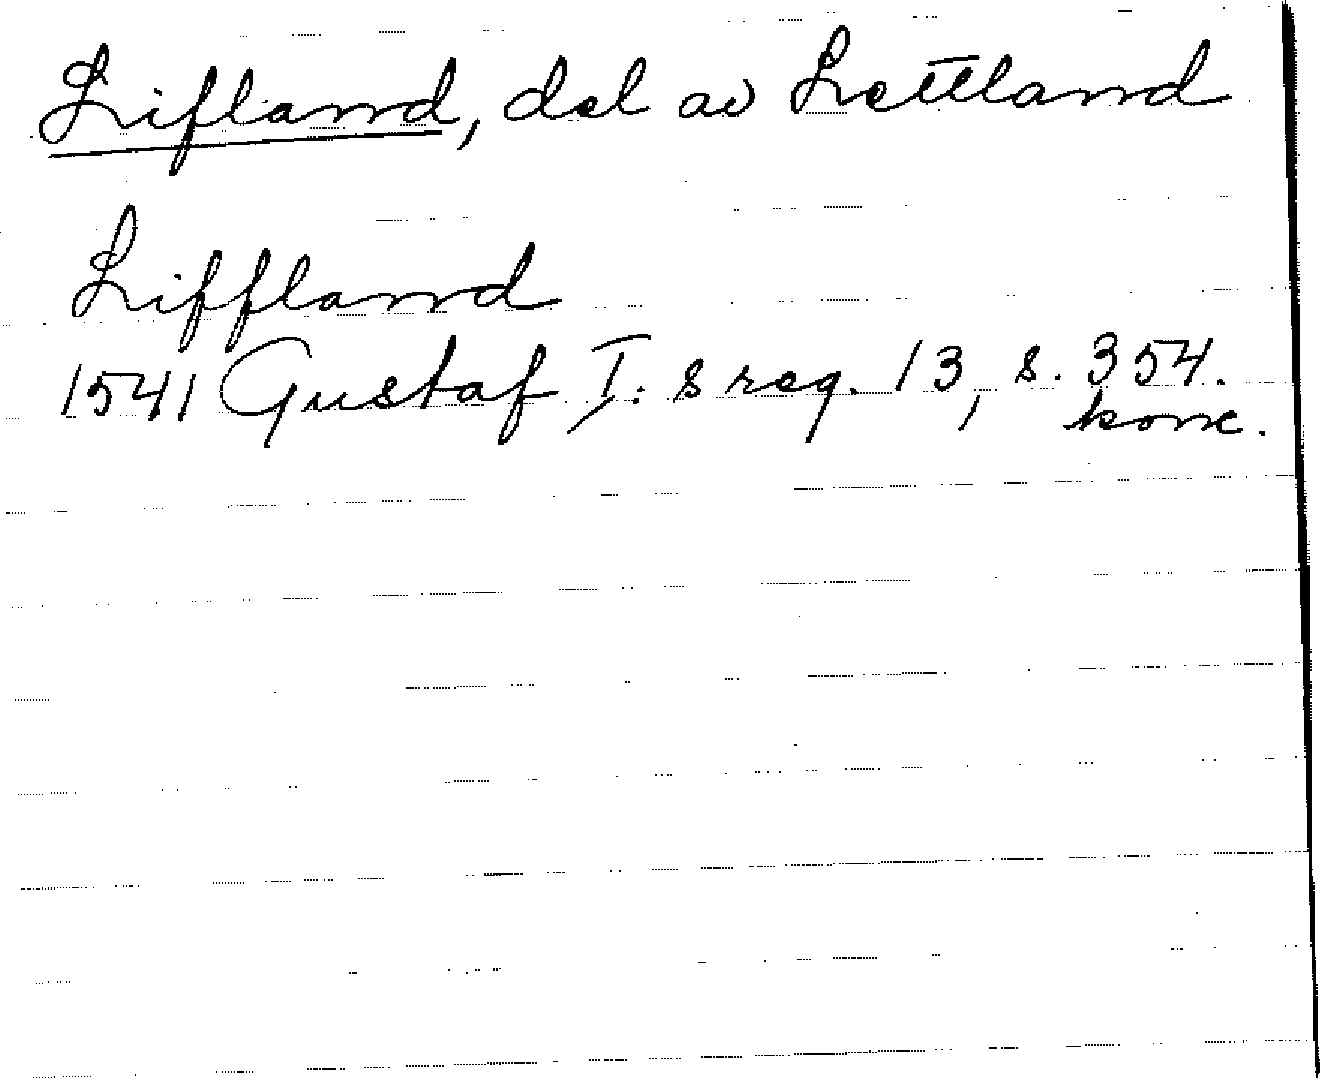 Lifland, del av Lettland
Liffland
1541 Gustaf I:s reg. 13, s. 354.
konc.